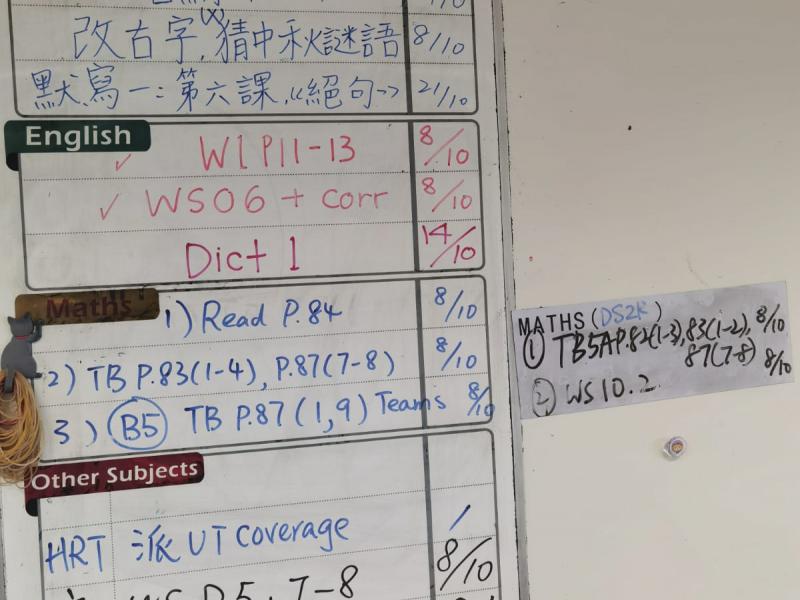 /10
改右字,猜中秋謎語 8/10
默寫一:第六課,《絕句》 21/10
English
✓ W1 P11-13 8/10
✓ WS06 + corr 8/10
Dict 1 14/10
Maths
1) Read P.84 8/10
2) TB P.83(1-4), P.87(7-8) 8/10
3) B5 TB P.87(1,9) Teams 8/10
MATHS (DS2K)
① TB5A P.82(1-3), 83(1-2), 8/10
87(7-8) 8/10
② WS 10.2
Other Subjects
HRT 派 UT coverage /
WS P.5, 7-8 8/10